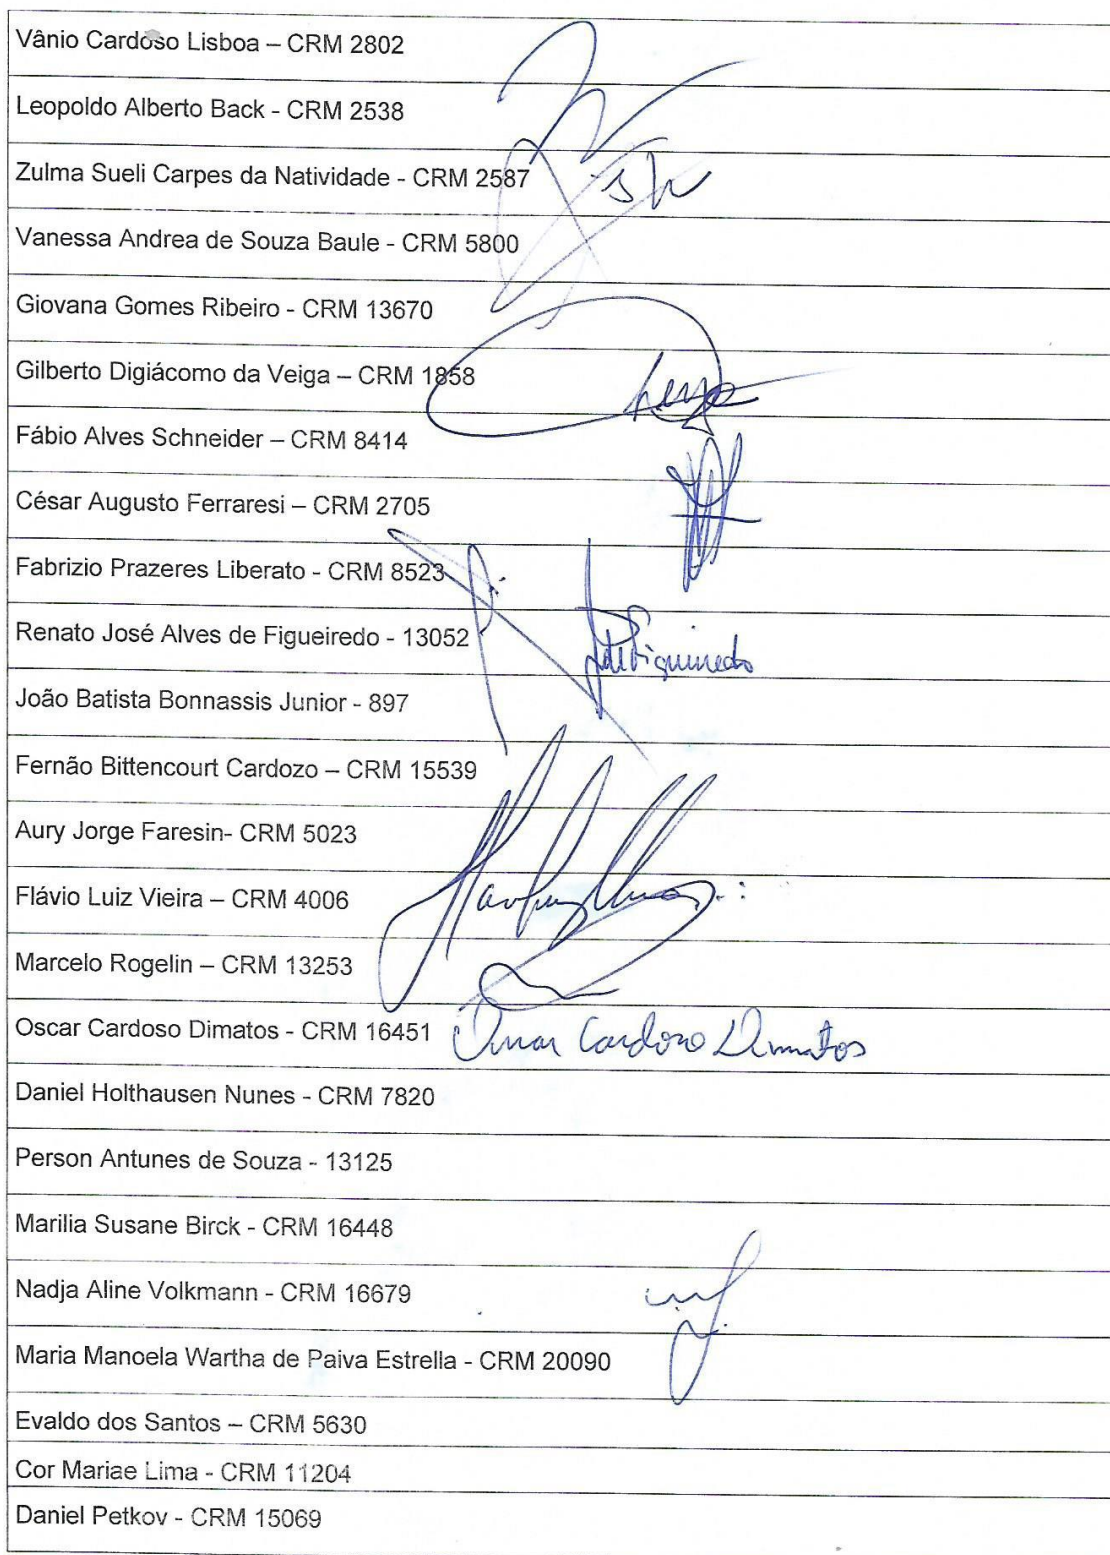 Vânio Cardoso Lisboa – CRM 2802
Leopoldo Alberto Back - CRM 2538
Zulma Sueli Carpes da Natividade - CRM 2587
Vanessa Andrea de Souza Baule - CRM 5800
Giovana Gomes Ribeiro - CRM 13670
Gilberto Digiácomo da Veiga – CRM 1858
Fábio Alves Schneider – CRM 8414
César Augusto Ferraresi – CRM 2705
Fabrizio Prazeres Liberato - CRM 8523
Renato José Alves de Figueiredo - 13052
João Batista Bonnassis Junior - 897
Fernão Bittencourt Cardozo – CRM 15539
Aury Jorge Faresin- CRM 5023
Flávio Luiz Vieira – CRM 4006
Marcelo Rogelin – CRM 13253
Oscar Cardoso Dimatos - CRM 16451 Oscar Cardoso Dimatos
Daniel Holthausen Nunes - CRM 7820
Person Antunes de Souza - 13125
Marilia Susane Birck - CRM 16448
Nadja Aline Volkmann - CRM 16679
Maria Manoela Wartha de Paiva Estrella - CRM 20090
Evaldo dos Santos – CRM 5630
Cor Mariae Lima - CRM 11204
Daniel Petkov - CRM 15069